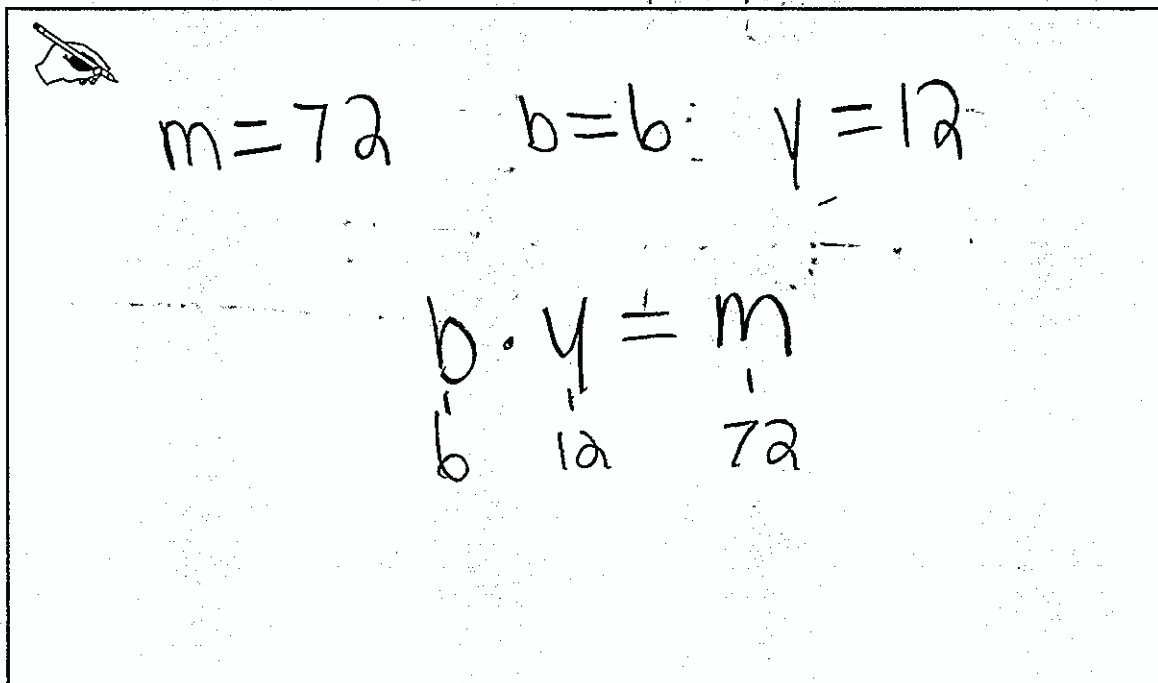 m=72 b=6 y=12
b · y = m
6 12 72